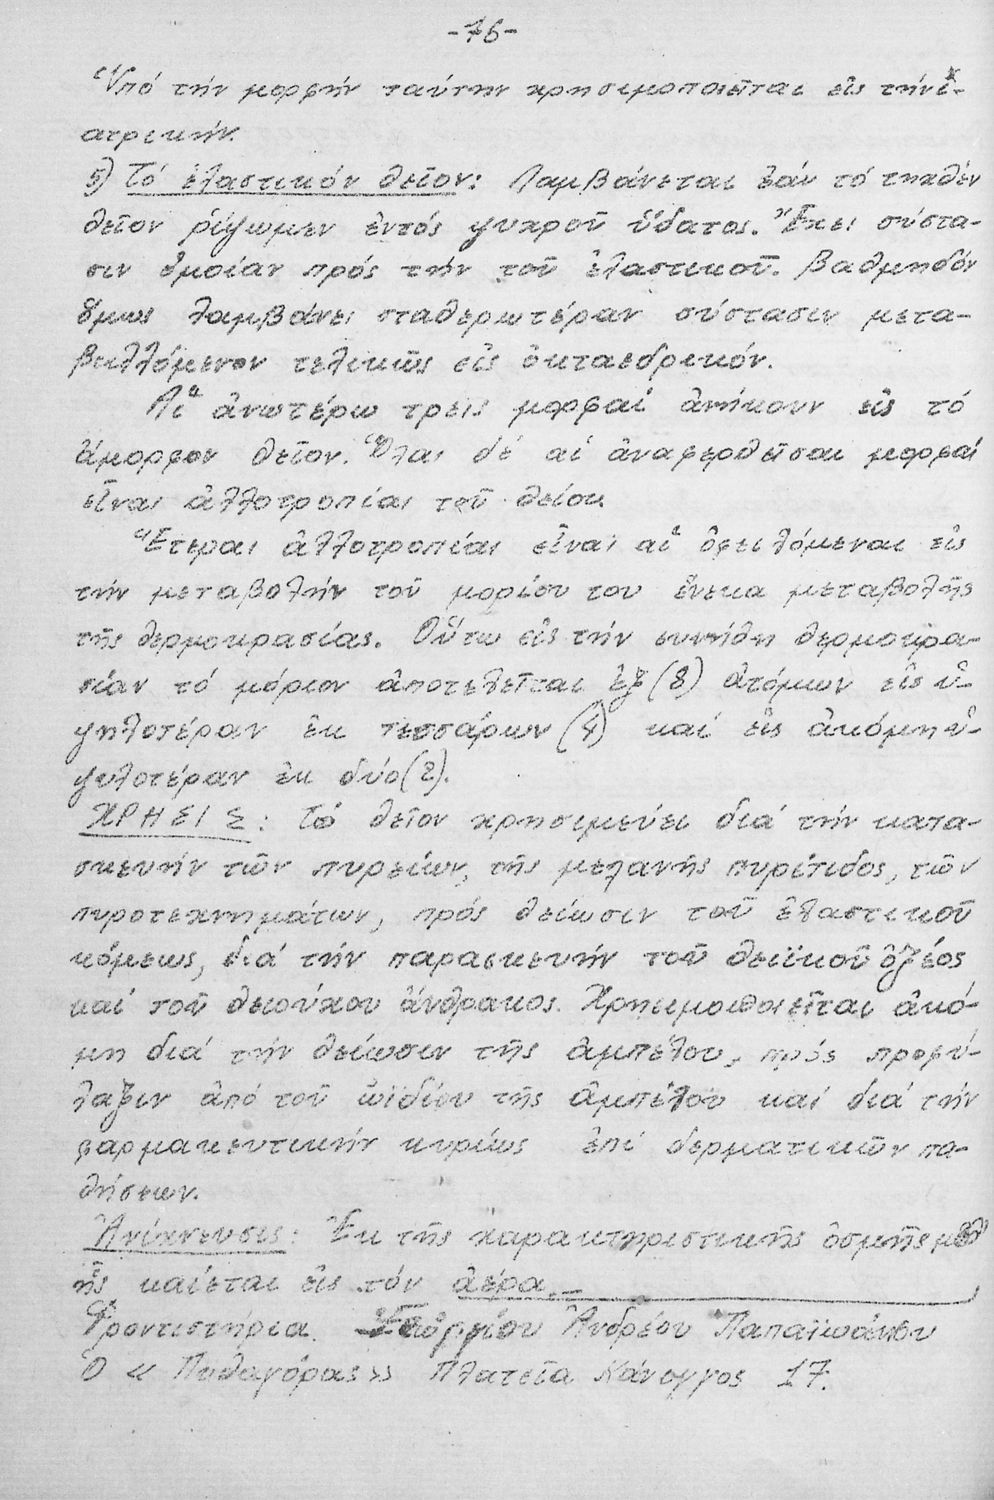 -76-
Ὑπό τήν μορφήν ταύτην χρησιμοποιεῖται εἰς τήν ἰ-
ατρικήν.
5) Τό ἐλαστικόν θεῖον: Λαμβάνεται ἐάν τό τηχθέν
θεῖον ρίψωμεν ἐντός ψυχροῦ ὕδατος. Ἔχει σύστα-
σιν ὁμοίαν πρός τήν τοῦ ἐλαστικοῦ. Βαθμηδόν
ὅμως λαμβάνει σταθερωτέραν σύστασιν μετα-
βαλλόμενον τελικῶς εἰς ὀκταεδρικόν.
Αἱ ἀνωτέρω τρεῖς μορφαί ἀνήκουν εἰς τό
ἄμορφον θεῖον. Ὅλαι δέ αἱ ἀναφερθεῖσαι μορφαί
εἶναι ἀλλοτροπίαι τοῦ θείου.
Ἕτεραι ἀλλοτροπίαι εἶναι αἱ ὀφειλόμεναι εἰς
τήν μεταβολήν τοῦ μορίου του ἕνεκα μεταβολῆς
τῆς θερμοκρασίας. Οὕτω εἰς τήν συνήθη θερμοκρα-
σίαν τό μόριον ἀποτελεῖται ἐξ (8) ἀτόμων εἰς ὑ-
ψηλοτέραν ἐκ τεσσάρων (4) καί εἰς ἀκόμη ὑ-
ψυλοτέραν ἐκ δύο (2).
ΧΡΗΣΙΣ: Τό θεῖον χρησιμεύει διά τήν κατα-
σκευήν τῶν πυρείων, τῆς μελανῆς πυρίτιδος, τῶν
πυροτεχνημάτων, πρός θείωσιν τοῦ ἐλαστικοῦ
κόμεως, διά τήν παρασκευήν τοῦ θειϊκοῦ ὀξέος
καί τοῦ θειούχου ἄνθρακος. Χρησιμοποιεῖται ἀκό-
μη διά τήν θείωσιν τῆς ἀμπέλου, πρός προφύ-
λαξιν ἀπό τοῦ ὠϊδίου τῆς ἀμπέλου καί διά τήν
φαρμακευτικήν κυρίως ἐπί δερματικῶν πα-
θήσεων.
Ἀνίχνευσις: Ἐκ τῆς χαρακτηριστικῆς ὀσμῆς μεθ'
ἧς καίεται εἰς τόν ἀέρα.-
Φροντιστήρια Γεωργίου Ἀνδρέου Παπαϊωάννου
Ὁ « Πυθαγόρας» Πλατεῖα Κάνιγγος 17.